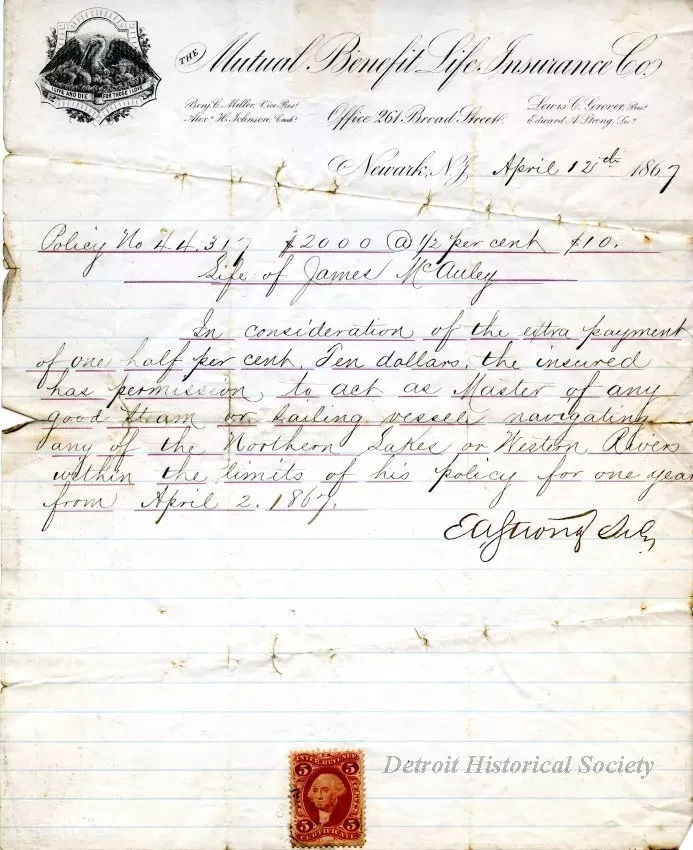 THE Mutual Benefit Life Insurance Co.
LIVE AND DIE FOR THOSE I LOVE
Benj. C. Miller, Vice Pres.
Lewis C. Grover, Pres.
Alex. H. Johnson, Cash.
Office 261 Broad Street.
Edward A. Strong, Sec.
Newark, N.J. April 12th 1867
Policy No 44,317 $2000 @ 1/2 per cent $10.
Life of James McAuley
In consideration of the extra payment
of one half per cent, Ten dollars, the insured
has permission to act as Master of any
good steam or sailing vessel navigating
any of the Northern Lakes or Western Rivers
within the limits of his policy for one year
from April 2. 1867.
E A Strong Secy
INTER. REVENUE
5 5
CENTS
5 5
CERTIFICATE
Detroit Historical Society